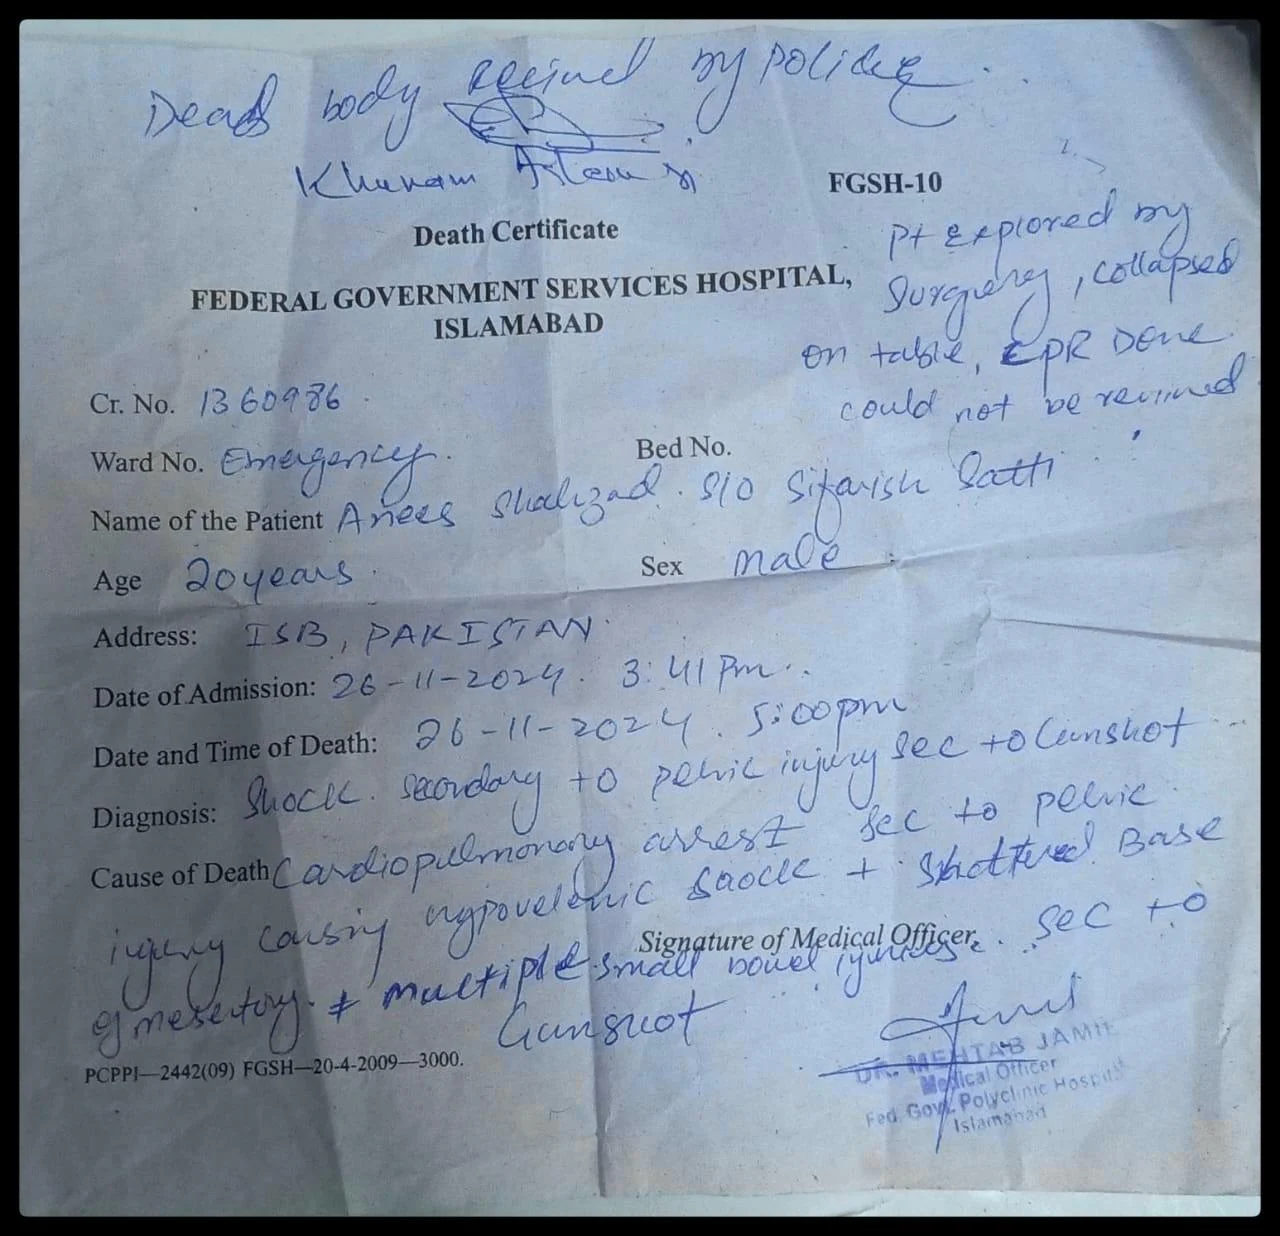 Dead body recived by police
Khuram
Death Certificate
FGSH-10
FEDERAL GOVERNMENT SERVICES HOSPITAL,
ISLAMABAD
Pt Explored by
Surgery, collapsed
on table, CPR Done
could not be revived
Cr. No. 1360986
Ward No. Emergency.
Bed No.
Name of the Patient Anees Shahzad. S/O Sifarish Satti
Age 20 years
Sex male
Address: ISB, PAKISTAN
Date of Admission: 26-11-2024. 3:41 pm.
Date and Time of Death: 26-11-2024. 5:00pm
Diagnosis: Shock. secondary to pelvic injury sec to Gunshot
Cause of Death Cardiopulmonary arrest sec to pelvic
injury causing hypovolemic shock + shattered Base
of mesentery. + multiple small bowel injuries. sec to
Gunshot
Signature of Medical Officer
PCPPI—2442(09) FGSH—20-4-2009—3000.
DR. MEHTAB JAMIL
Medical Officer
Fed. Govt. Polyclinic Hospital
Islamabad